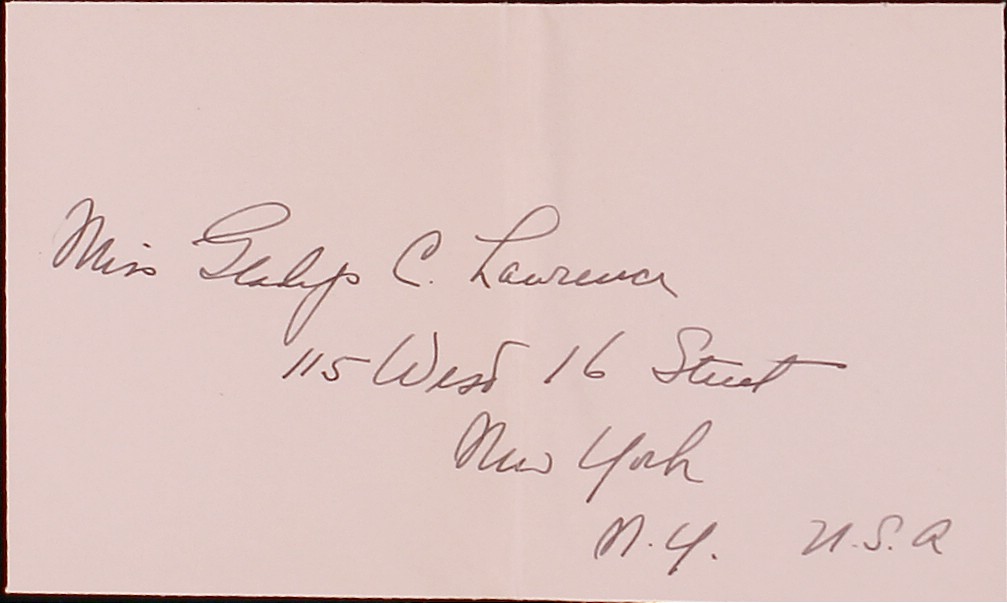 Miss Gladys C. Lawrence
115 West 16 Street
New York
N.Y. U.S.A